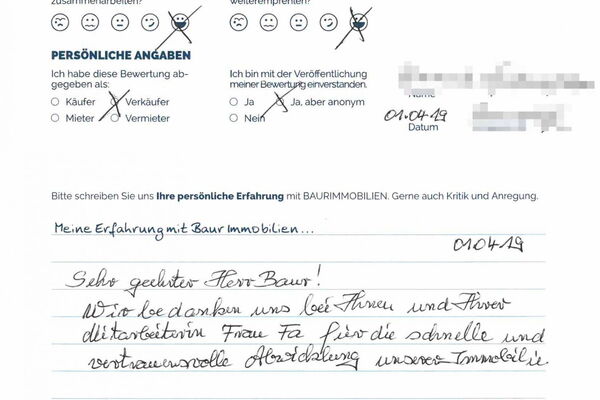 zusammenarbeiten?
weiterempfehlen?
PERSÖNLICHE ANGABEN
Ich habe diese Bewertung ab-
gegeben als:
Käufer Verkäufer
Mieter Vermieter
Ich bin mit der Veröffentlichung
meiner Bewertung einverstanden.
Ja Ja, aber anonym
Nein
Name
01.04.19
Datum
Bitte schreiben Sie uns Ihre persönliche Erfahrung mit BAURIMMOBILIEN. Gerne auch Kritik und Anregung.
Meine Erfahrung mit Baur Immobilien...
01.04.19
Sehr geehrter Herr Baur!
Wir bedanken uns bei Ihnen und Ihrer
Mitarbeiterin Frau Fa für die schnelle und
vertrauensvolle Abwicklung unserer Immobilie.